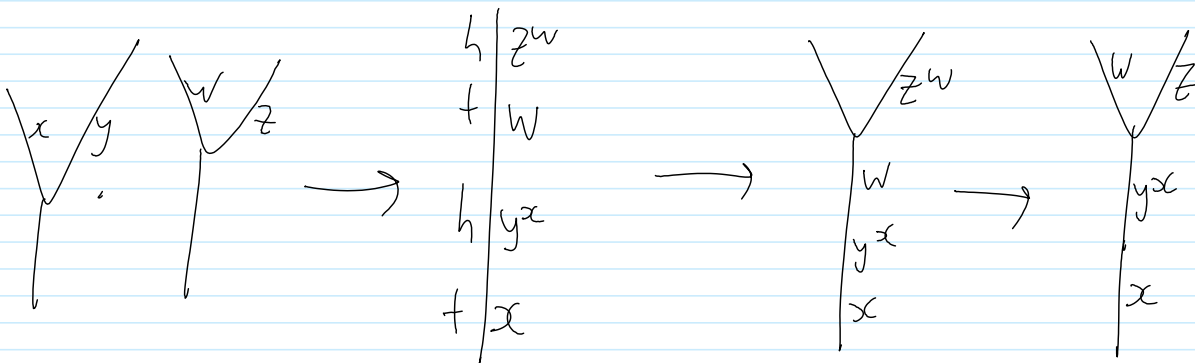 x y
w z
h z^w
t w
h y^x
t x
z^w
w
y^x
x
w z
y^x
x